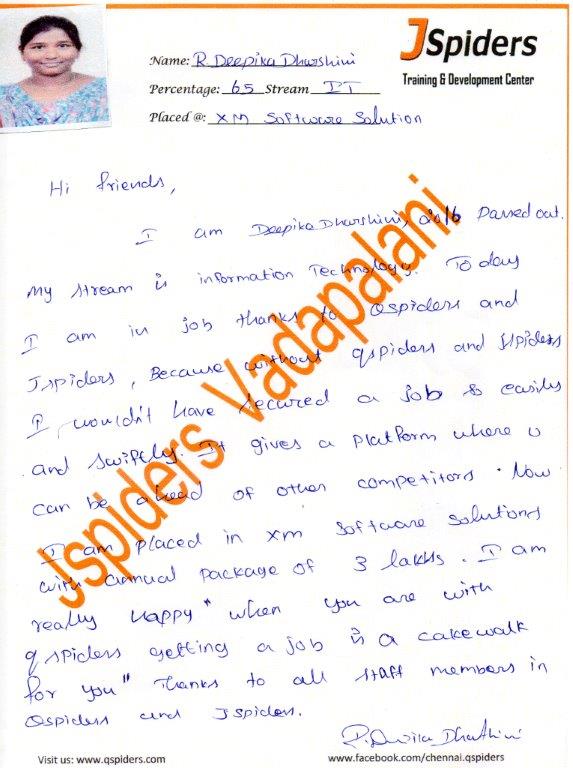 JSpiders
Training & Development Center
Name: R. Deepika Dharshini
Percentage: 65 Stream IT
Placed @: XM Software Solution
Hi friends,
I am Deepika Dharshini, 2016 Passed out.
My stream is information Technology. Today
I am in job thanks to Qspiders and
Jspiders, Because without qspiders and Jspiders
I wouldn't have secured a job so easily
and swiftly. It gives a platform where u
can be ahead of other competitors. Now
I am placed in xm software solutions
with annual package of 3 lakhs. I am
really happy "when you are with
qspiders getting a job is a cakewalk
for you" Thanks to all staff members in
Qspiders and Jspiders.
Jspiders Vadapalani
Visit us: www.qspiders.com
www.facebook.com/chennai.qspiders